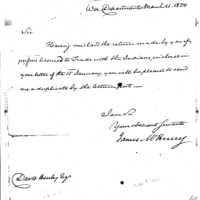 War Department March 21. 1800
Sir
Having mislaid the return made by you of
persons licensed to Trade with the Indians, inclosed in
your letter of the 15 January, you will be pleased to send
me a duplicate by the return post
I am Sir
Your obedient Servant
James McHenry
David Henley Esqr